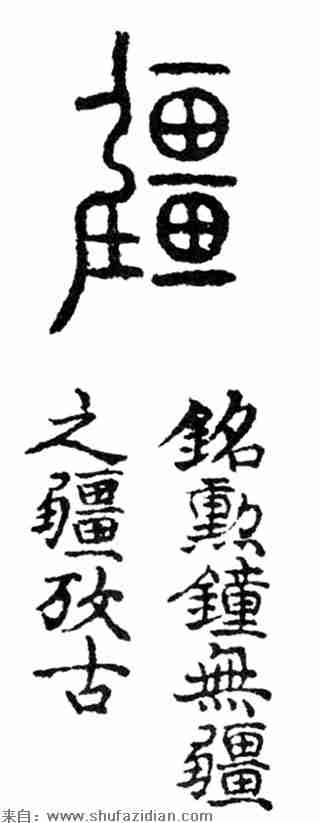 疆
銘勲鐘無疆
之疆攷古
来自：www.shufazidian.com